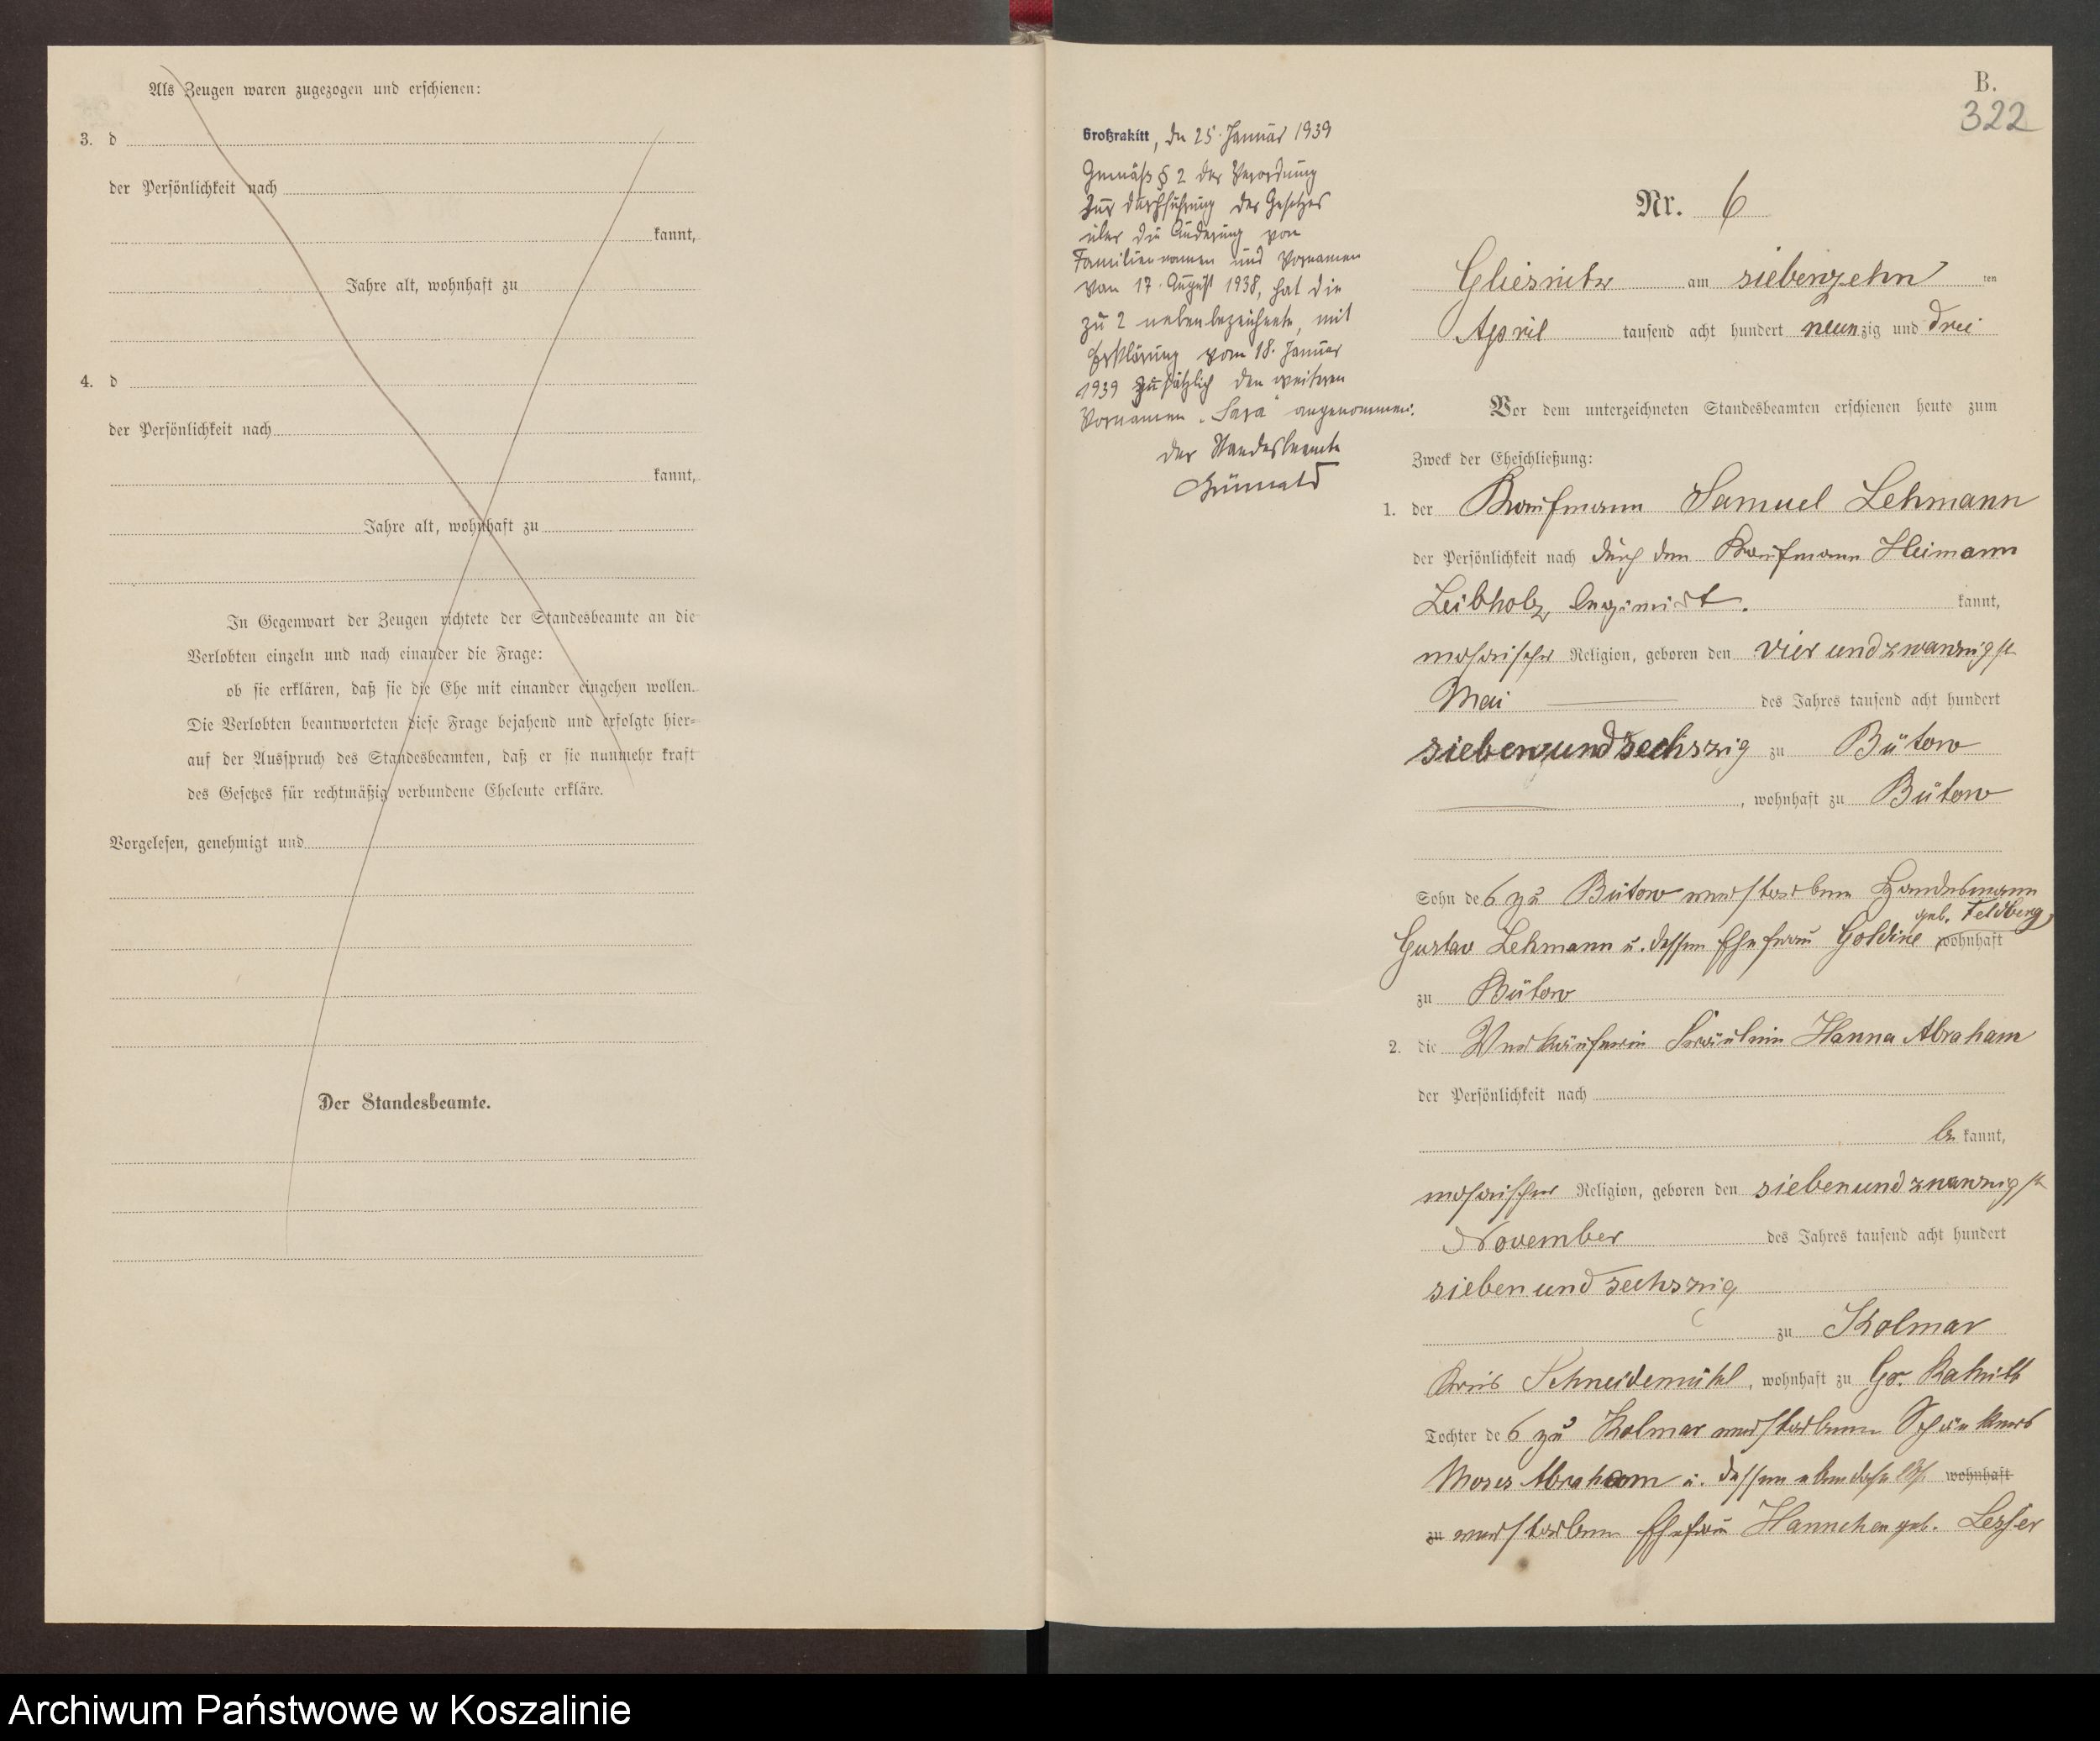 Als Zeugen waren zugezogen und erschienen:
3. d
der Persönlichkeit nach
kannt,
Jahre alt, wohnhaft zu
4. d
der Persönlichkeit nach
kannt,
Jahre alt, wohnhaft zu
In Gegenwart der Zeugen richtete der Standesbeamte an die
Verlobten einzeln und nach einander die Frage:
ob sie erklären, daß sie die Ehe mit einander eingehen wollen.
Die Verlobten beantworteten diese Frage bejahend und erfolgte hier-
auf der Ausspruch des Standesbeamten, daß er sie nunmehr kraft
des Gesetzes für rechtmäßig verbundene Eheleute erkläre.
Vorgelesen, genehmigt und
Der Standesbeamte.
B.
322
Großrakitt, den 25. Januar 1939
Gemäß § 2 der Verordnung
zur Durchführung des Gesetzes
über die Änderung von
Familiennamen und Vornamen
vom 17. August 1938, hat die
zu 2 nebenbezeichnete, mit
Erklärung vom 18. Januar
1939 zusätzlich den weiteren
Vornamen "Sara" angenommen.
Der Standesbeamte
Nr. 6
Gliesnitz am siebenzehn ten
April tausend acht hundert neunzig und drei
Vor dem unterzeichneten Standesbeamten erschienen heute zum
Zweck der Eheschließung:
1. der Kaufmann Samuel Lehmann
der Persönlichkeit nach durch den Kaufmann Heimann
Leibholz legimirt. kannt,
mosaischer Religion, geboren den vier und zwanzigst
Mai des Jahres tausend acht hundert
sieben und sechszig zu Bütow
, wohnhaft zu Bütow
Sohn des zu Bütow verstorbenen Handelsmann
geb. Feldberg
Gustav Lehmann u. dessen Ehefrau Goldine wohnhaft
zu Bütow
2. die Verkäuferin Fräulein Hanna Abraham
der Persönlichkeit nach
be kannt,
mosaischer Religion, geboren den sieben und zwanzigst
November des Jahres tausend acht hundert
sieben und sechszig
zu Kolmar
Kreis Schneidemühl, wohnhaft zu Gr. Rakitt
Tochter des zu Kolmar verstorbenen Schänkers
Moses Abraham u. dessen ebendaselbst wohnhaft
zu verstorbenen Ehefrau Hannchen geb. Lesser
Archiwum Państwowe w Koszalinie